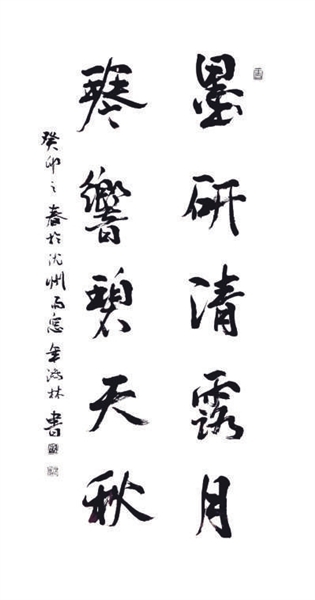 墨研清露月
琴響碧天秋
癸卯之春於沈州雨窓金海林書